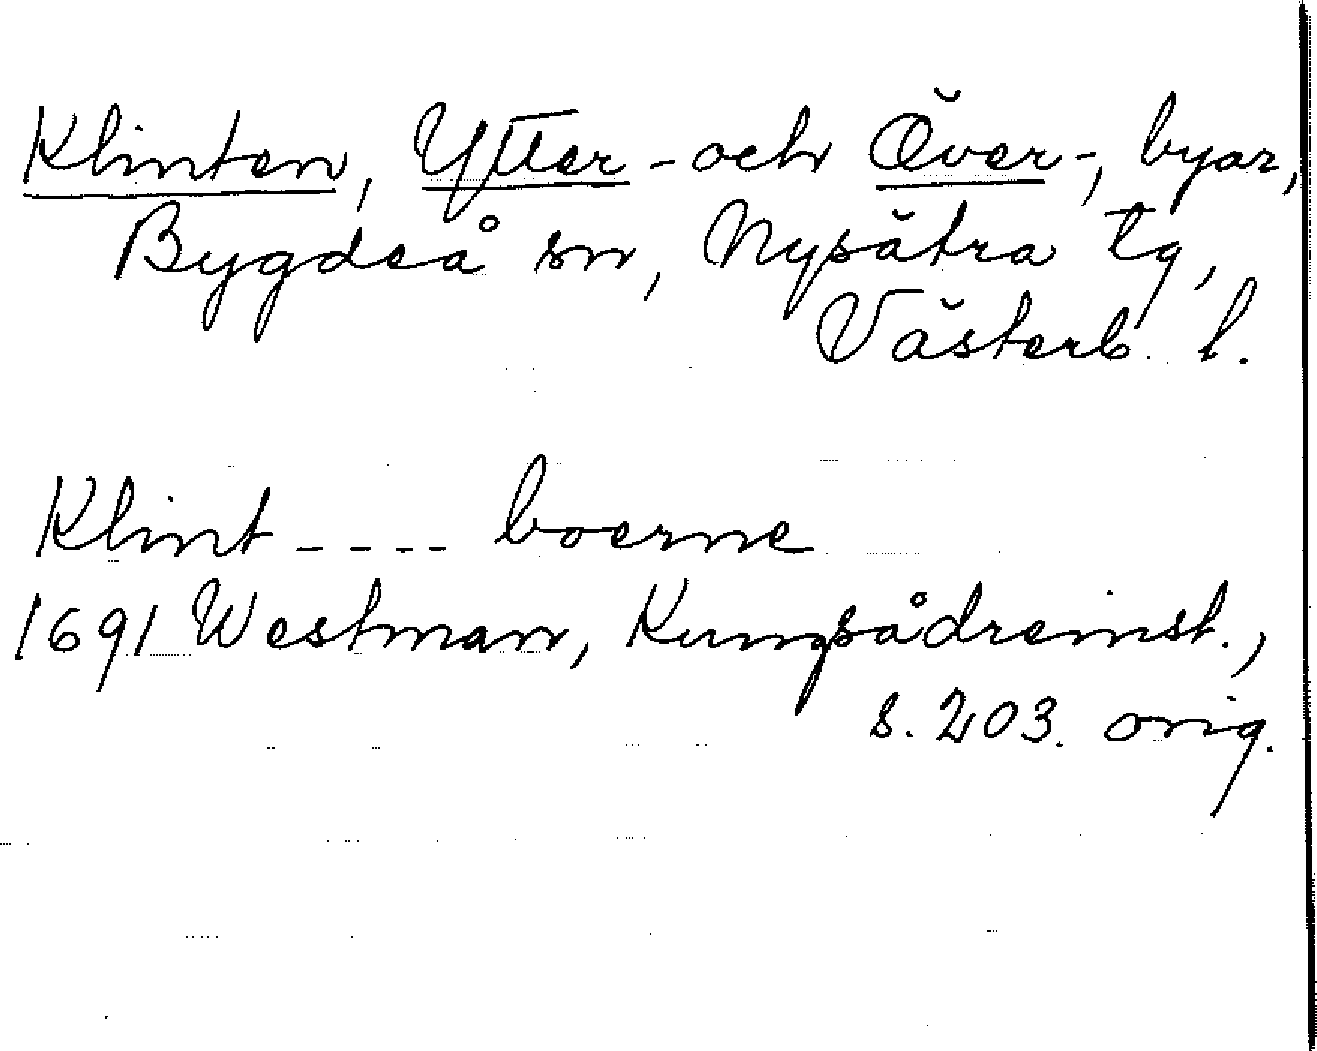 Klinten, Ytter- och Över-, byar,
Bygdeå sn, Nysätra tg,
Västerb. l.
Klint ---- boerne
1691 Westman, Kungsådreinst.,
s. 203. orig.